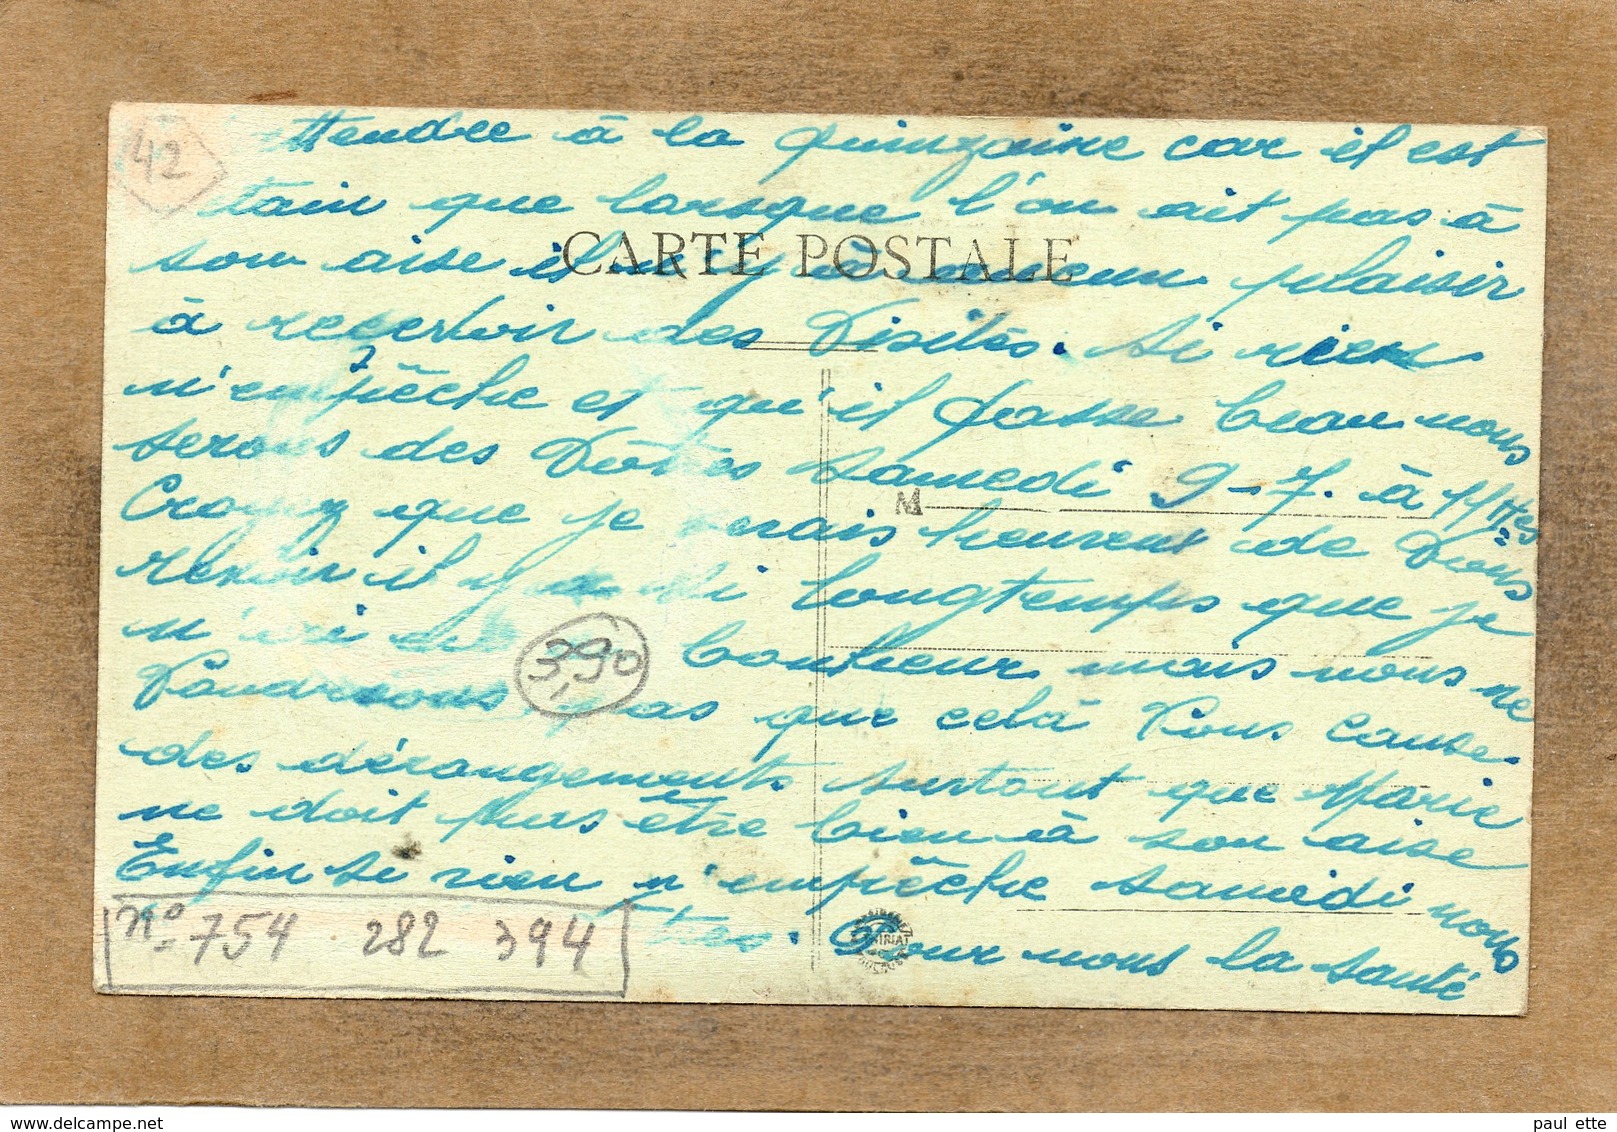 42
ttendre à la quinzaine car il est
tain que lorsque l'on ait pas à
CARTE POSTALE
son aise il n'y a aucun plaisir
à recevoir des Visites. Si rien
n'empêche et qu'il fasse beau nous
serons des Vôtres samedi 9-7. à 11 Hes
M
Croyez que je serais heureux de Vous
revoir il y a si longtemps que je
n'ai eu bonheur mais nous ne
3,90
Voudrions pas que celà Vous cause
des dérangements surtout que Marie
ne doit plus être bien à son aise
Enfin si rien n'empêche samedi nous
No 754 282 394
tres. Pour nous la santé
paul ette